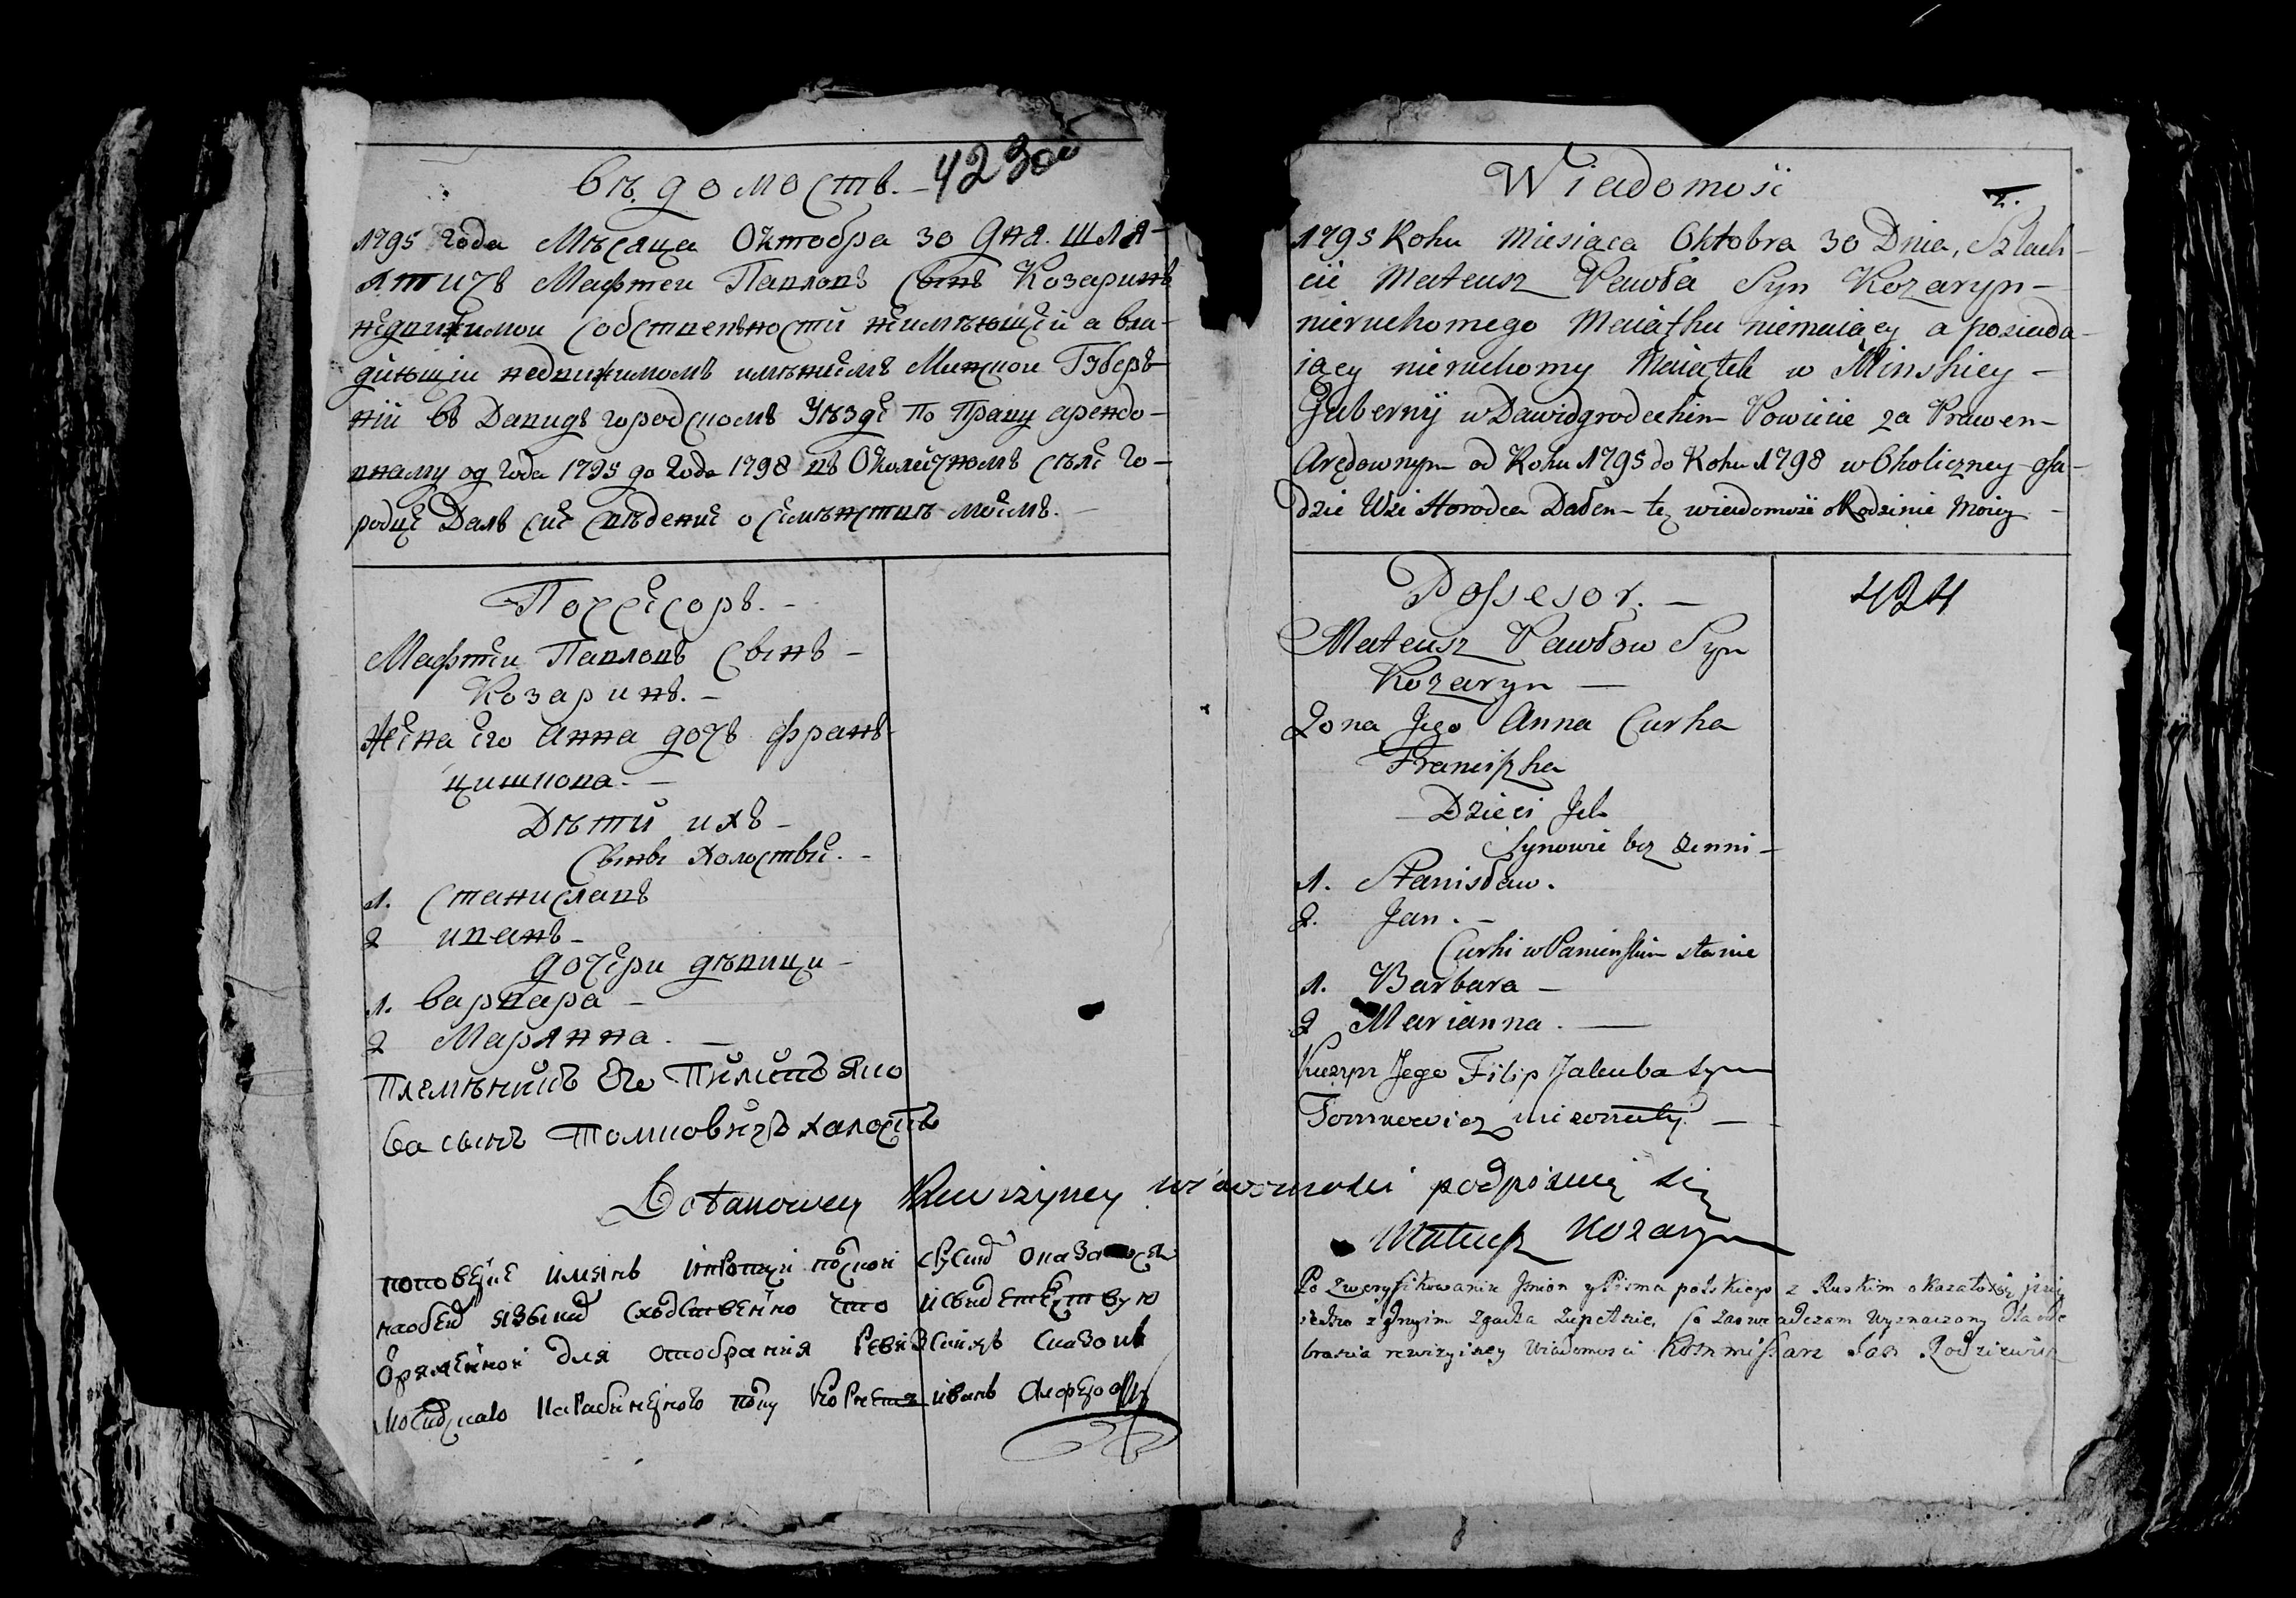 вѣдомость. 423
1795 года Мѣсяца Октобра 30 Дня. Шля-
хтичъ Мафтеи Павловъ Сынъ Козаринъ
недвижимои Собственьности неимѣющіи а вла-
диющіи недвижимомъ имѣніемъ Минскои Губерь-
ніи въ Давидъ городскомъ Уѣзде по Праву арендо-
вному од года 1795 до года 1798 въ Околичномъ Селе го-
родце Далъ сие сведение о семѣнстве моемъ.
Поссесоръ.
Мафтеи Павловъ Сынъ
Козаринъ.
Жена его Анна дочъ Франъ
цишкова.
Дѣти ихъ
Сыны Холостыи.
1. Станиславъ
2 иванъ
дочери дѣвици
1. варвара
2 Марянна.
Племѣникъ его Пилипъ Яко
ва сынъ Томковичъ халостъ
Wiadomość
1795 Roku Miesiąca Oktobra 30 Dnia, Szlach-
cic Mateusz Pawła Syn Kozaryn
nieruchomego Maiątku niemaiący a posiada-
iący nieruchomy Maiątek w Minskiey
Gubernij w Dawidgrodeckim Powiecie za Prawem
Arędownym od Roku 1795 do Roku 1798 w Okoliczney osa-
dzie Wsi Horodca Dałem tę wiadomość o Rodzinie Moiey
Possesor. 424
Mateusz Pawłow Syn
Kozaryn
Żona Jego Anna Curka
Franciszka
Dzieci Ich
Synowie bez żenni
1. Stanisław.
2. Jan.
Curki w Panienskim stanie
1. Barbara
2 Marianna.
Kuzyn Jego Filip Jakuba Syn
Tomkowicz nieżonaty
Do takowey Rewizyney wiadomości podpisuię się
Mateusz Kozaryn
наобеих языках сходственно что и свидетелствую
для отобрания ревизских сказокъ
иванъ
Po zweryfikowaniu Jmion z Pisma polskiego z Ruskim okazało się iż
iedno z drugim zgadza zupełnie, co zaswiadczam wyznaczony dla ode
brania rewizyiney Wiadomosci Kommissarz Jan